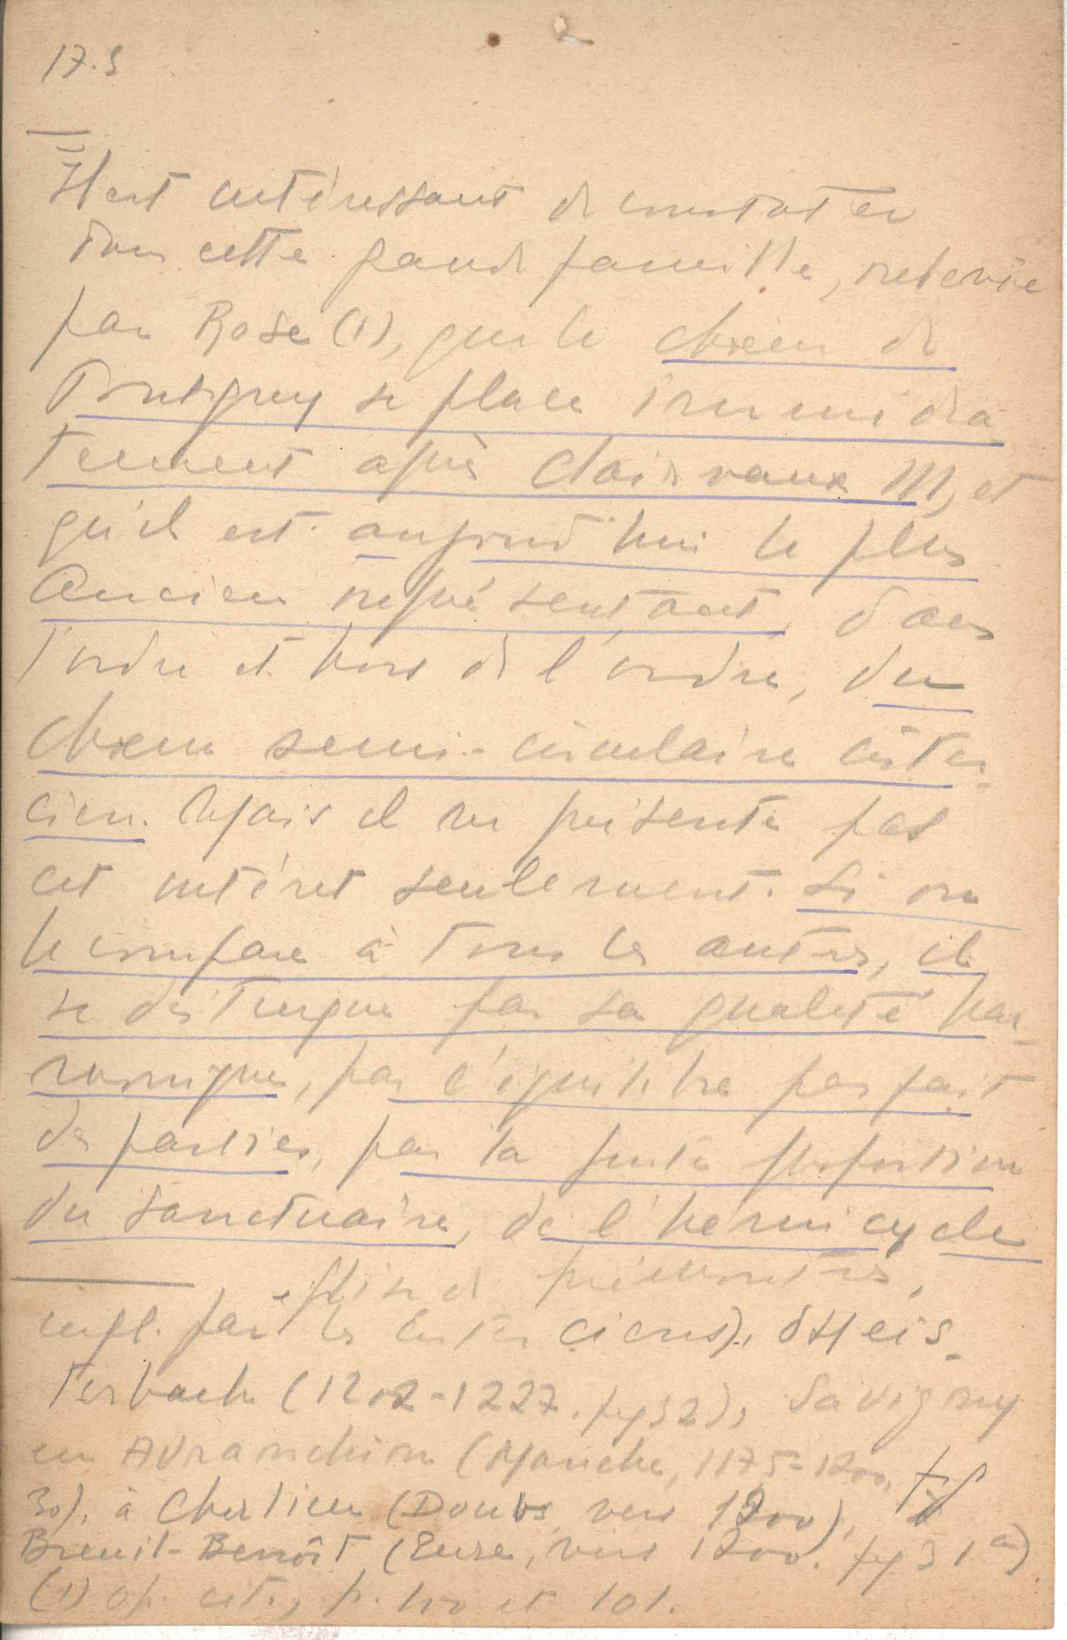 17.5
Il est intéressant de constater
dans cette grande famille, relevée
par Rose (1), que le chœur de
Pontigny se place immédia-
tement après Clairvaux III, et
qu'il est aujourd'hui le plus
ancien représentant, dans
l'ordre et hors de l'ordre, du
chœur semi-circulaire cister-
cien. Mais il ne présente pas
cet intéret seulement. Si on
le compare à tous les autres, il
se distingue par sa qualité har-
monique, par l'équilibre parfait
des parties, par la juste proportion
du sanctuaire, de l'hémicycle
église de prémontrés,
infl. par les Cisterciens), d'Heis-
terbach (1202-1227, fig 32), Savigny
en Avranchin (Manche, 1175-1200, fig
30), à Cherlieu (Doubs, vers 1200),
Breuil-Benoît (Eure, vers 1200. fig 31a)
(1) op. cit., p. 100 et 101.